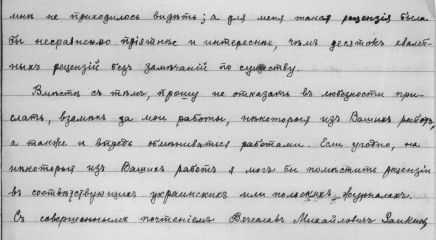 мнѣ не приходилось видѣть; а для меня такая рецензія была
бы несравненно пріятнѣе и интереснѣе, чѣмъ десятокъ хвалеб-
ныхъ рецензій безъ замѣчаній по существу.
Вмѣстѣ съ тѣмъ, прошу не отказать въ любезности при-
слать, взамѣнъ за мои работы, нѣкоторыя изъ Вашихъ работъ,
а также и впредь обмѣниваться работами. Если угодно, на
нѣкоторыя изъ Вашихъ работъ я могъ бы помѣстить рецензіи
въ соотвѣтствующихъ украинскихъ или польскихъ журналахъ.
Съ совершеннымъ почтеніемъ Вячеславъ Михайловичъ Заикинъ